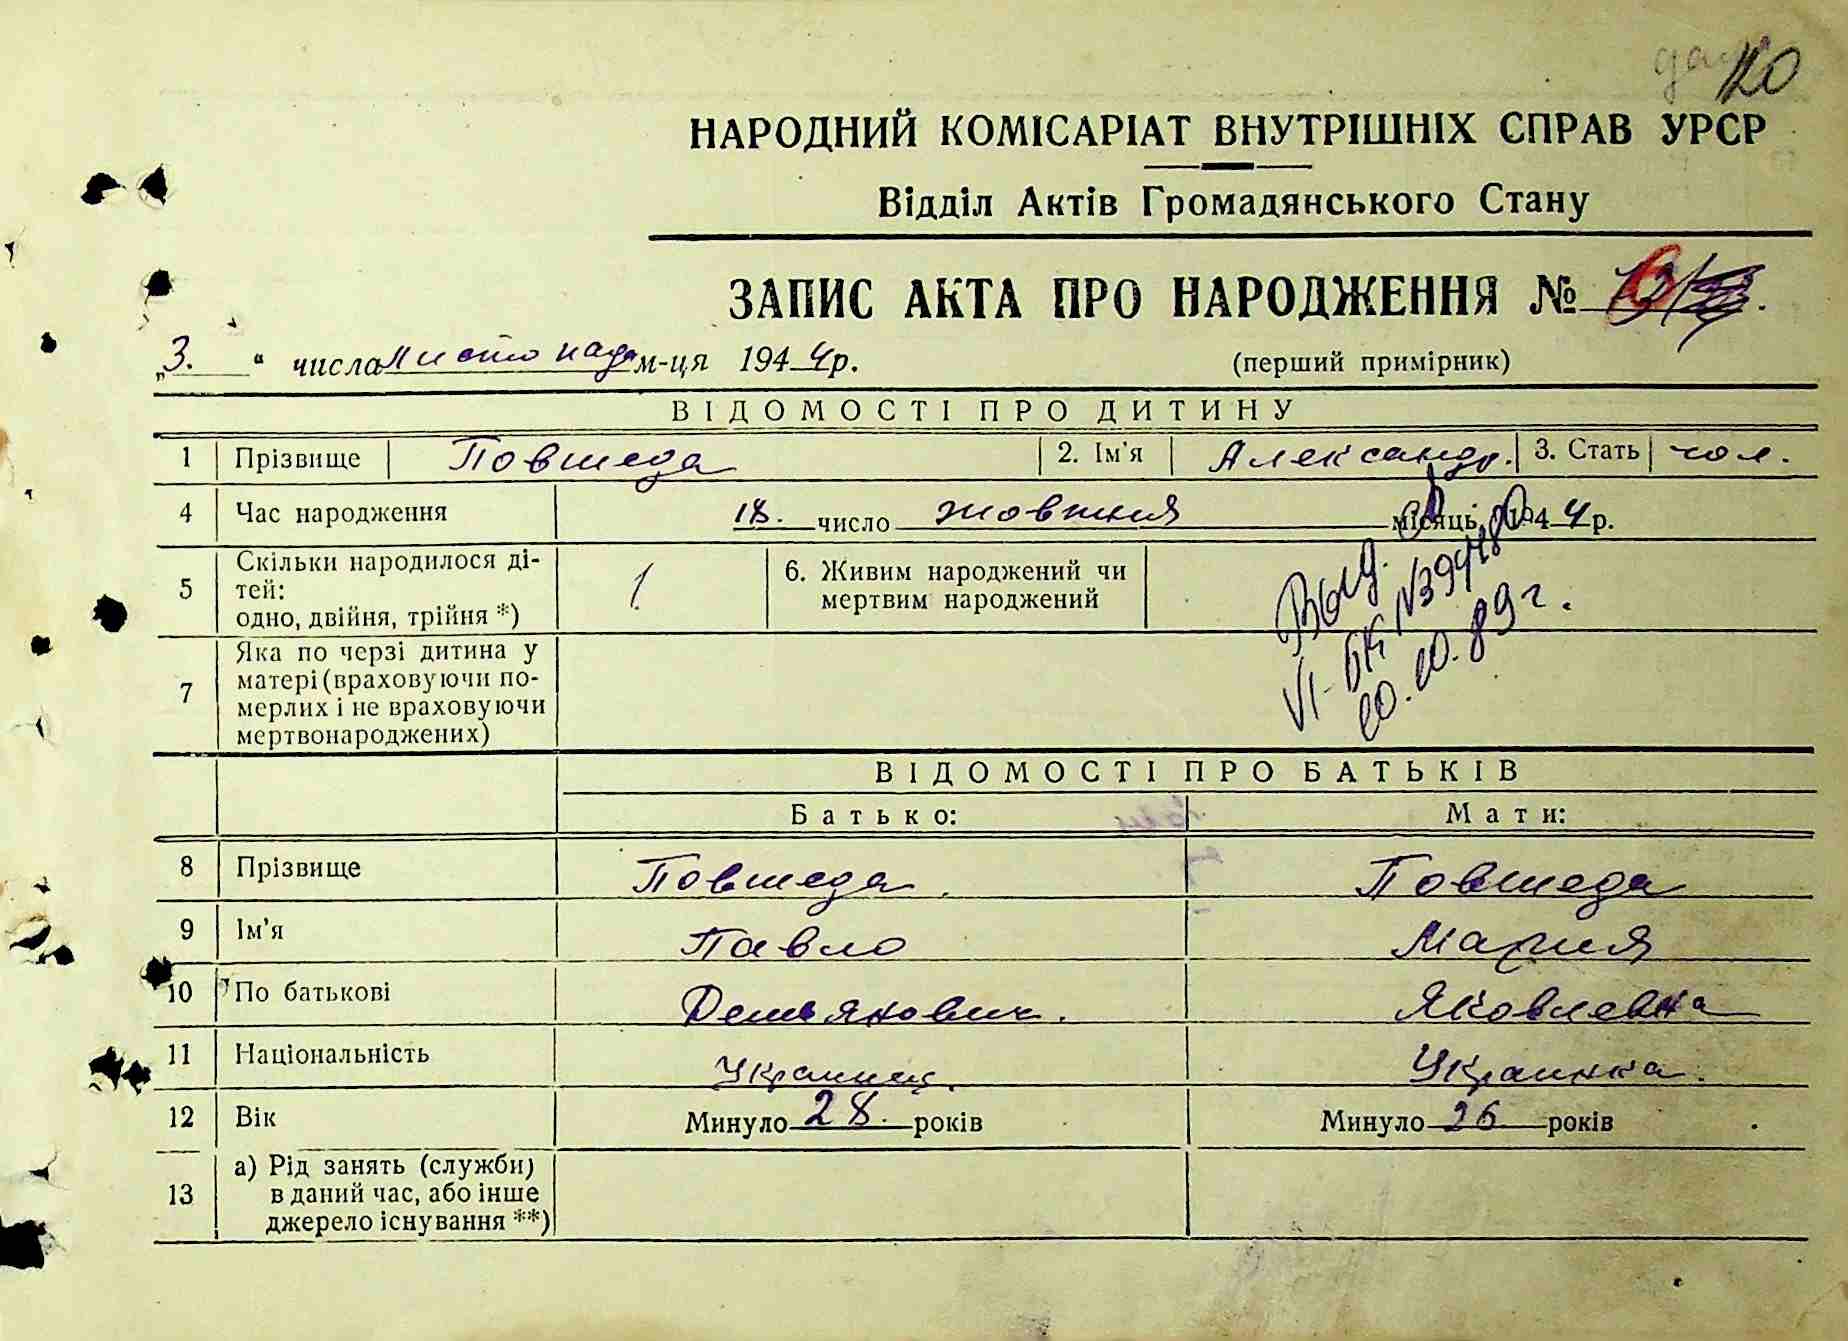 120
НАРОДНИЙ КОМІСАРІАТ ВНУТРІШНІХ СПРАВ УРСР
Відділ Актів Громадянського Стану
ЗАПИС АКТА ПРО НАРОДЖЕННЯ № 6
„3.“ числа листопада м-ця 1944р. (перший примірник)
ВІДОМОСТІ ПРО ДИТИНУ
1 Прізвище Повшеда 2. Ім'я Александр. 3. Стать чол.
4 Час народження 18. число жовтня місяць 1944р.
5 Скільки народилося ді-
тей:
одно, двійня, трійня *) 1.
6. Живим народжений чи
мертвим народжений
7 Яка по черзі дитина у
матері (враховуючи по-
мерлих і не враховуючи
мертвонароджених)
Выд.
VI-БК №394480
20.10.89г.
ВІДОМОСТІ ПРО БАТЬКІВ
Батько: Мати:
8 Прізвище Повшеда Повшеда
9 Ім'я Павло Мария
10 По батькові Демьянович. Яковлевна
11 Національність Украинец. Украинка.
12 Вік Минуло 28. років Минуло 26 років
13 а) Рід занять (служби)
в даний час, або інше
джерело існування **)